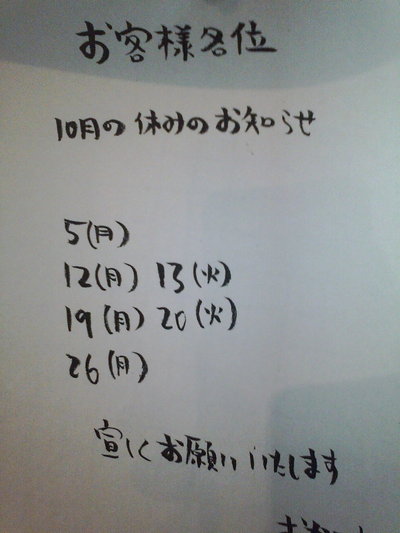 お客様各位
10月の休みのお知らせ
5(月)
12(月) 13(火)
19(月) 20(火)
26(月)
宜しくお願いいたします